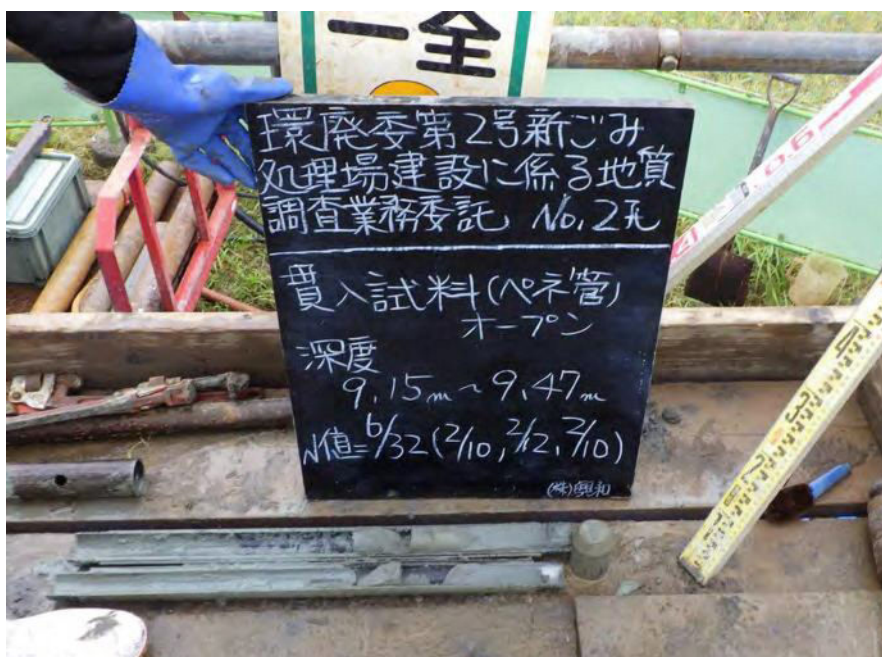 一全
環廃委第2号新ごみ
処理場建設に係る地質
調査業務委託 No.2孔
貫入試料(ペネ管)
オープン
深度
9.15m~9.47m
N値=6/32(2/10,2/12,2/10)
(株)興和